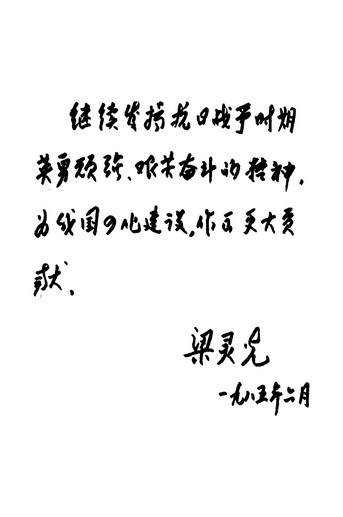 继续发扬抗日战争时期
英勇顽强、艰苦奋斗的精神，
为我国四化建设，作出更大贡
献。
梁灵光
一九八五年六月